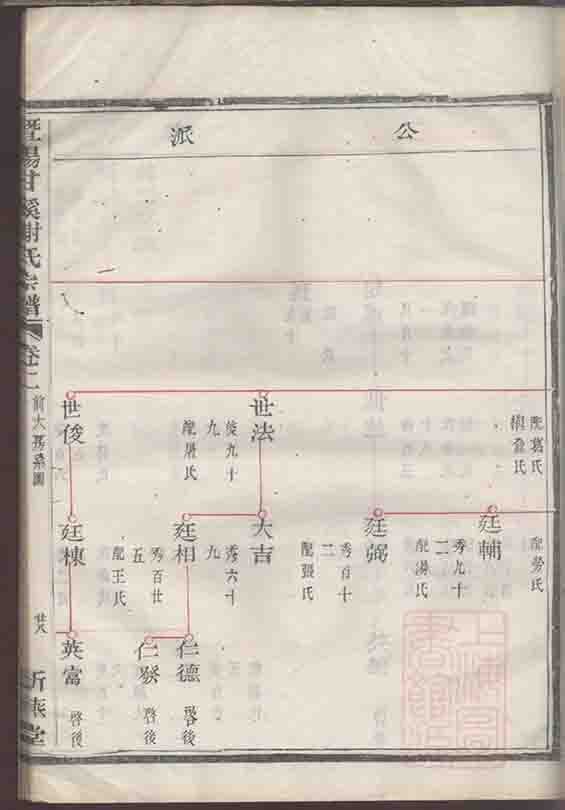 公派
配葛氏
繼俞氏
配勞氏
廷輔
秀九十二
配湯氏
廷弼
秀百十二
配張氏
世法
俊九十九
配屠氏
大吉
秀六十九
廷相
秀百廿五
配王氏
仁德
啓後
仁發
啓後
世俊
廷棟
英富
啓後
暨陽甘溪謝氏宗譜
卷二
前大房系圖
廿八